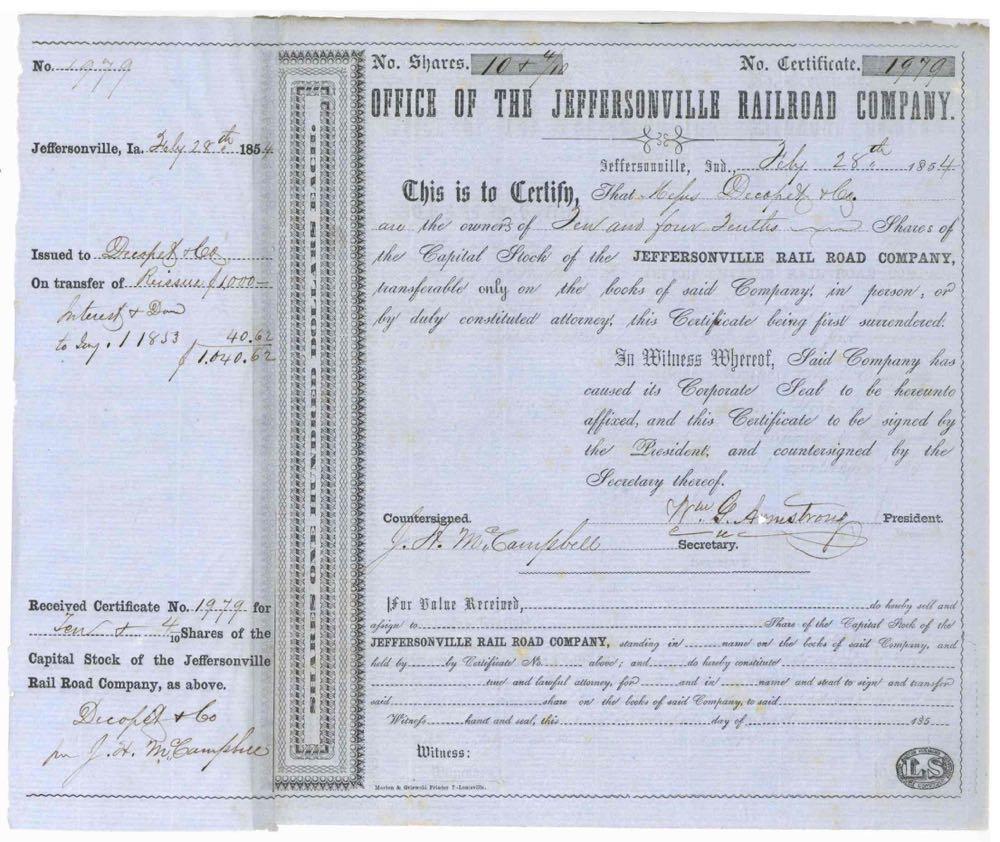 No. 1979
Jeffersonville, Ia. Feby 28th 1854
Issued to Decopet & Co
On transfer of Reissue $1000—
Interest & Dvd
to Jany. 1 1853 40.62
$1.040.62
Received Certificate No. 1979 for
Ten & 4/10 Shares of the
Capital Stock of the Jeffersonville
Rail Road Company, as above.
Decopet & Co
per J. H. McCampbell
SHARES ONE HUNDRED DOLLARS EACH.
No. Shares. 10 & 4/10 No. Certificate. 1979
OFFICE OF THE JEFFERSONVILLE RAILROAD COMPANY.
Jeffersonville, Ind., Feby 28th 1854
This is to Certify, That Messs Decopet & Co.
are the owners of Ten and four Tenths Shares of
the Capital Stock of the JEFFERSONVILLE RAIL ROAD COMPANY,
transferable only on the books of said Company, in person, or
by duly constituted attorney, this Certificate being first surrendered.
In Witness Whereof, Said Company has
caused its Corporate Seal to be hereunto
affixed, and this Certificate to be signed by
the President, and countersigned by the
Secretary thereof.
Wm G. Armstrong President.
Countersigned.
J. H. McCampbell Secretary.
For Value Received, do hereby sell and
assign to Share of the Capital Stock of the
JEFFERSONVILLE RAIL ROAD COMPANY, standing in name on the books of said Company, and
held by by Certificate No. above; and do hereby constitute
true and lawful attorney, for and in name and stead to sign and transfer
said share on the books of said Company, to said
Witness hand and seal, this day of 185
Witness:
LS
Morton & Griswold Printer's-Louisville.